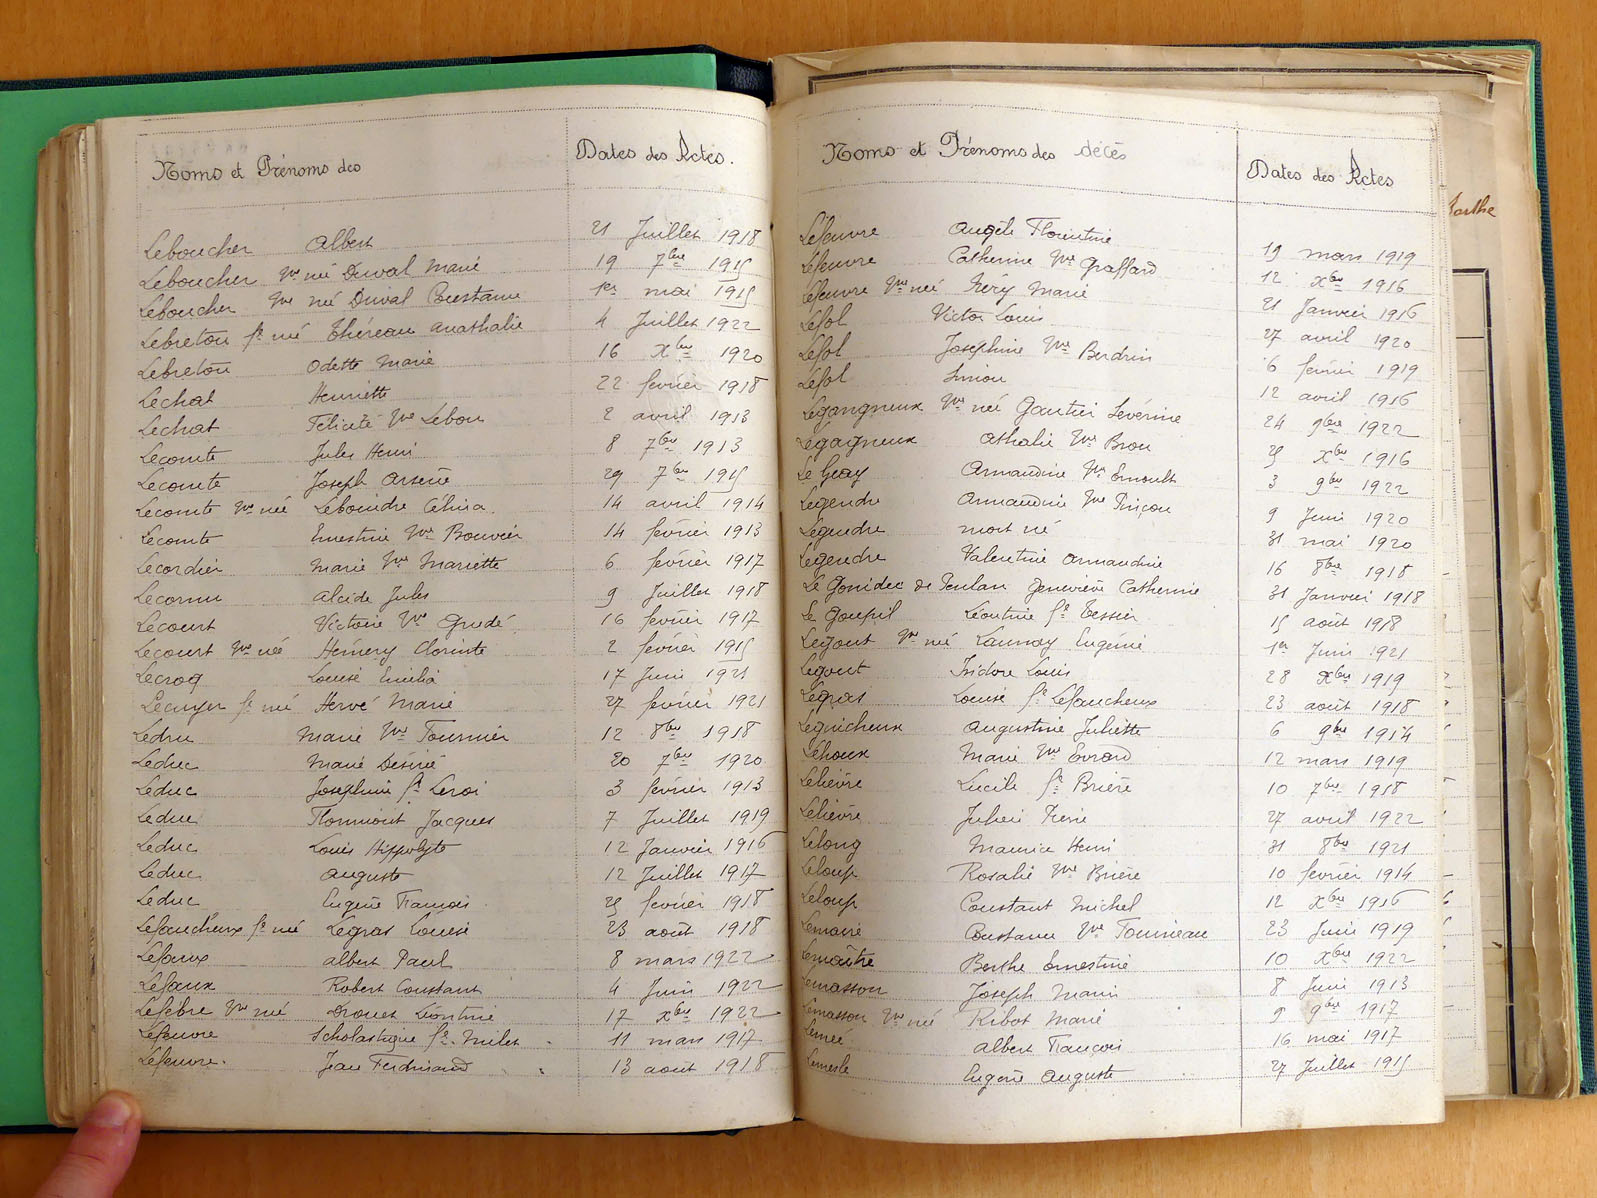 Noms et Prénoms des
Dates des Actes.
Leboucher Albert 21 Juillet 1918
Leboucher Vve née Duval Marie 19 7bre 1915
Leboucher Vve née Duval Constance 1er mai 1915
Lebreton fe née Théreau Anathalie 4 Juillet 1922
Lebreton Odette Marie 16 Xbre 1920
Lechat Henriette 22 février 1918
Lechat Félicité Vve Lebou 2 avril 1913
Lecomte Jules Henri 8 7bre 1913
Lecomte Joseph Arsène 29 7bre 1915
Lecomte Vve née Leboindre Célina 14 avril 1914
Lecomte Ernestine Vve Bouvier 14 février 1913
Lecordier Marie Vve Mariette 6 février 1917
Lecornu Alcide Jules 9 Juillet 1918
Lecourt Victoire Vve Grudé 16 février 1917
Lecourt Vve née Hémery Clorinte 2 février 1915
Lecroq Louise Emilia 17 Juin 1921
Lecuyer fe née Hervé Marie 27 février 1921
Ledru Marie Vve Fournier 12 8bre 1918
Leduc Marie Désirée 20 7bre 1920
Leduc Joséphine fe Leroi 3 février 1913
Leduc Jacques 7 Juillet 1919
Leduc Louis Hippolyte 12 Janvier 1916
Leduc Auguste 12 Juillet 1917
Leduc Eugène François 25 février 1918
Lefaucheux fe née Legras Louise 23 août 1918
Lefaux Albert Paul 8 mars 1922
Lefaux Robert Constant 4 Juin 1922
Lefebre Vve née Drouet Léontine 17 Xbre 1922
Lefeuvre Scholastique fe Milet 11 mars 1917
Lefeuvre. Jean Ferdinand 13 août 1918
Noms et Prénoms des décès
Dates des Actes
Lefeuvre Angèle Florentine 19 mars 1919
Lefeuvre Catherine Vve Graffard 12 Xbre 1916
Lefeuvre Vve née Fréry Marie 21 Janvier 1916
Lefol Victor Louis 27 avril 1920
Lefol Joséphine Vve Berdrin 6 février 1919
Lefol Simon 12 avril 1916
Legangneux Vve née Gautier Séverine 24 9bre 1922
Legagneux Athalie Vve Brou 25 Xbre 1916
Le Geay Armandine Vve Ernoult 3 9bre 1922
Legendre Armandine Vve Pinçon 9 Juin 1920
Legendre mort né 31 mai 1920
Legendre Valentine Armandine 16 8bre 1918
Le Gonidec de Penlan Geneviève Catherine 31 Janvier 1918
Le Goupil Léontine fe Tessier 15 août 1918
Legout Vve née Launay Eugénie 1er Juin 1921
Legout Isidore Louis 28 Xbre 1919
Legras Louise fe Lefaucheux 23 août 1918
Leguicheux Augustine Juliette 6 9bre 1914
Lehoux Marie Vve Evrard 12 mars 1919
Lelièvre Lucile fe Brière 10 7bre 1918
Lelièvre Julien 27 avril 1922
Lelong Maurice Henri 31 8bre 1921
Leloup Rosalie Vve Brière 10 février 1914
Leloup Constant Michel 12 Xbre 1916
Lemaire Constance Vve Fournieau 23 Juin 1919
Lemaître Berthe Ernestine 10 Xbre 1922
Lemasson Joseph Marin 8 Juin 1913
Lemasson Vve née Ribot Marie 5 9bre 1917
Lemée Albert François 16 mai 1917
Lemesle Eugène Auguste 27 Juillet 1915